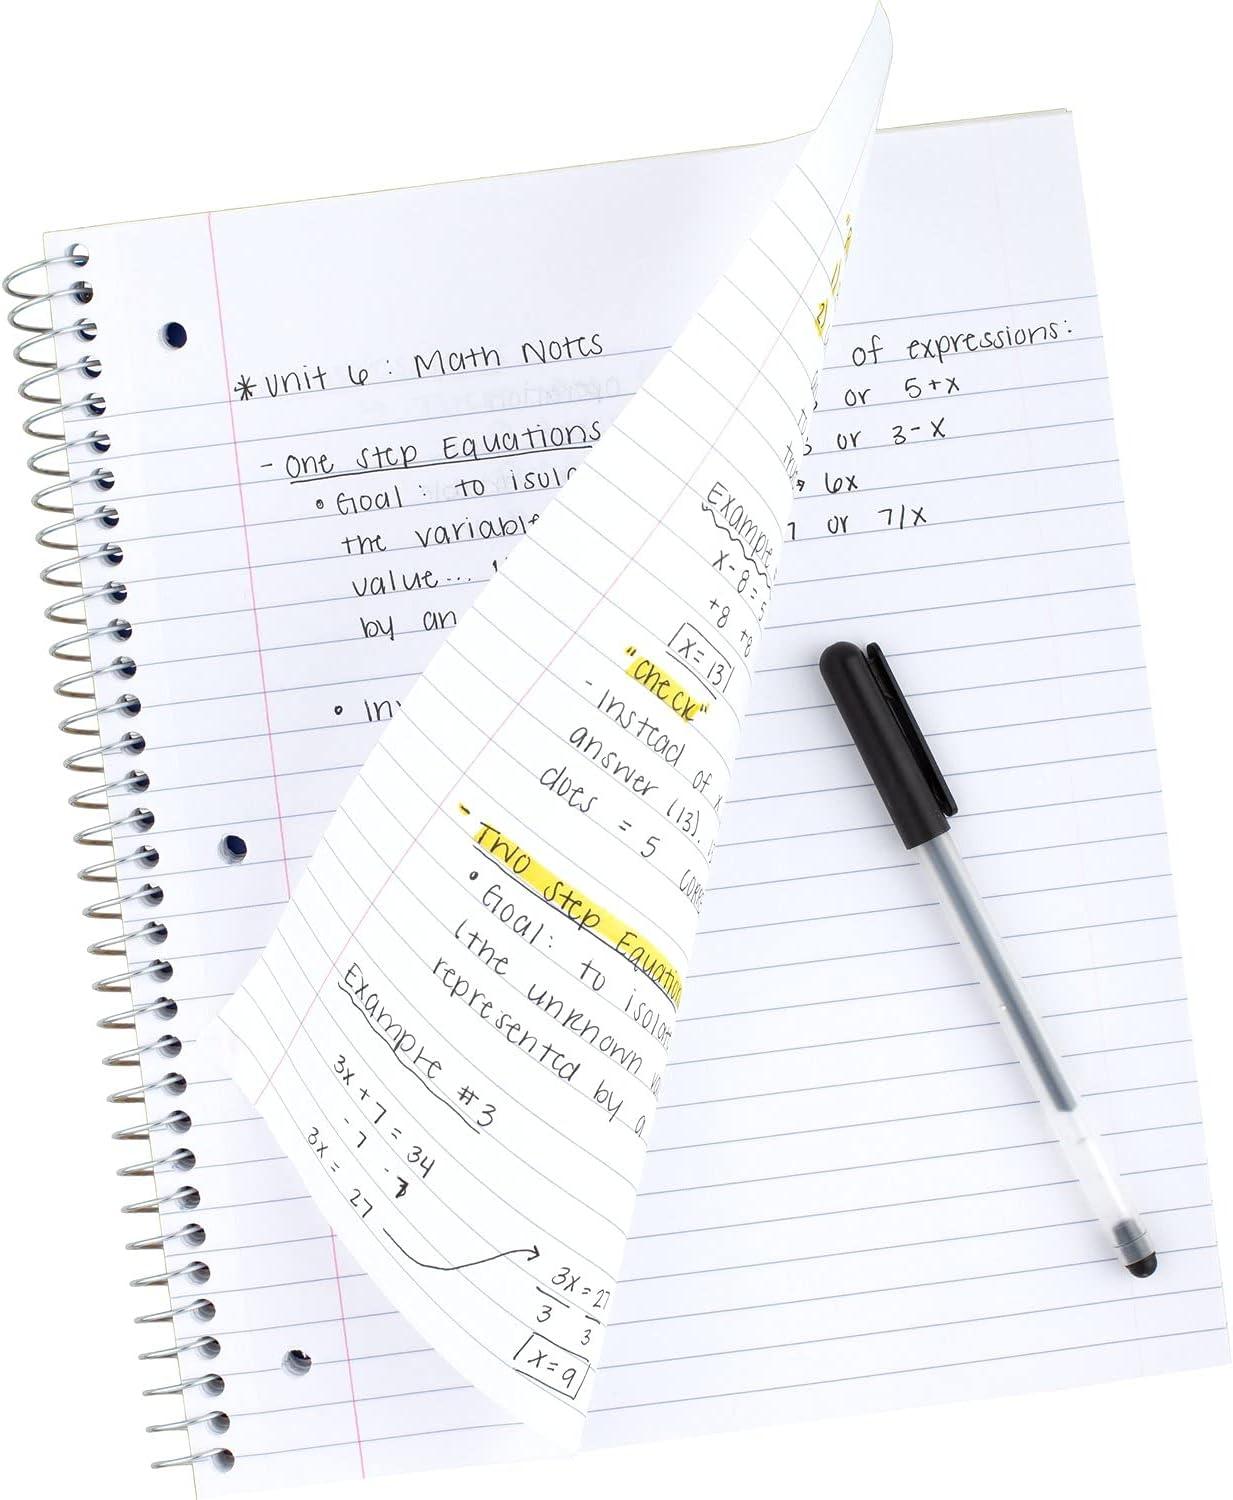 * Unit 6 : Math Notes
- One Step Equations
• Goal : to
the variable
value...
by an
•
of expressions:
or 5+x
or 3-x
6x
7 or 7/x
2)
Example
x-8=5
+8 +8
x=13
"check"
- Instead of x
answer (13).
does = 5
- Two Step Equation
• Goal: to
(the unknown
represented by a
Example #3
3x+7=34
-7 -7
3x = 27
3x=27
3 3
x=9